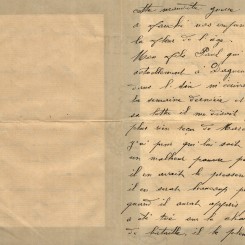 cette maudite guerre
a nos enfants
la fleur de l'age.
Mon fils Paul qui
actuellement à
dans l'Ain m'écrivait
la semaine dernière et
sa lettre il me disait
plus rien
j'ai peur qu'il lui soit
un malheur pauvre
il en avait le pressen
il en serait beaucoup
quand il aurait appris
a été tué sur le cham
de bataille il le